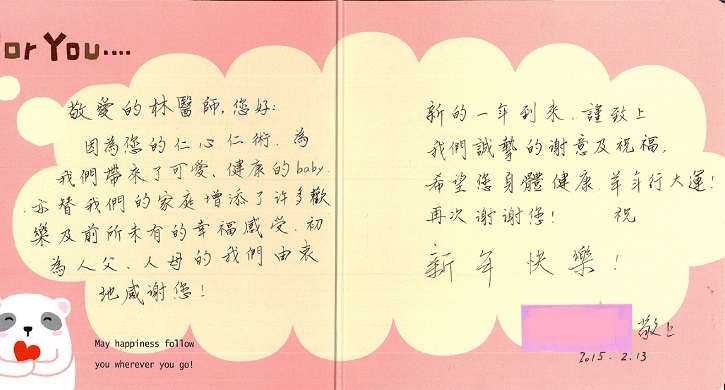 For You....
敬愛的林醫師,您好:
因為您的仁心仁術.為
我們帶來了可愛、健康的baby.
亦替我們的家庭增添了許多歡
樂及前所未有的幸福感受.初
為人父.人母的我們由衷
地感谢您!
May happiness follow
you wherever you go!
新的一年到來.謹致上
我們誠摯的谢意及祝福,
希望您身體健康.羊年行大運!
再次谢谢您! 祝
新年快樂!
敬上
2015. 2.13